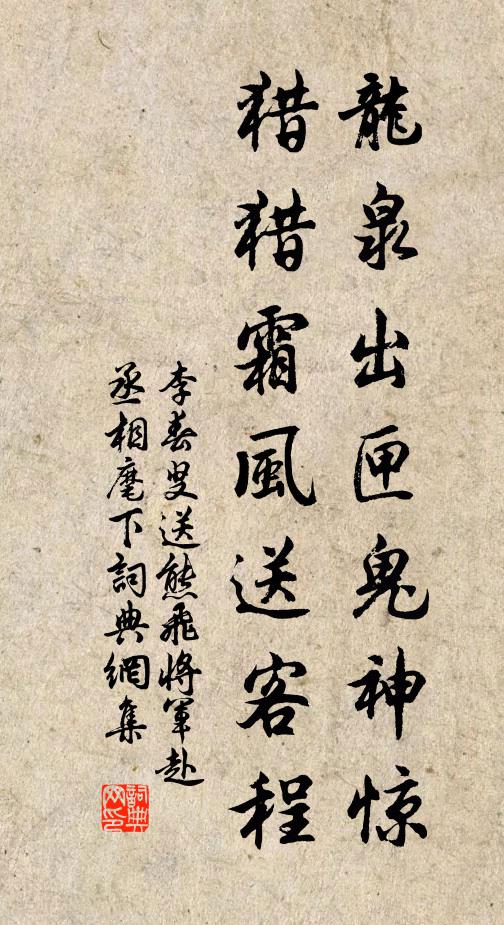 龍泉出匣鬼神惊
猎猎霜風送客程
李春叟送熊飛將軍赴
丞相麾下詞典網集
詞典
网印